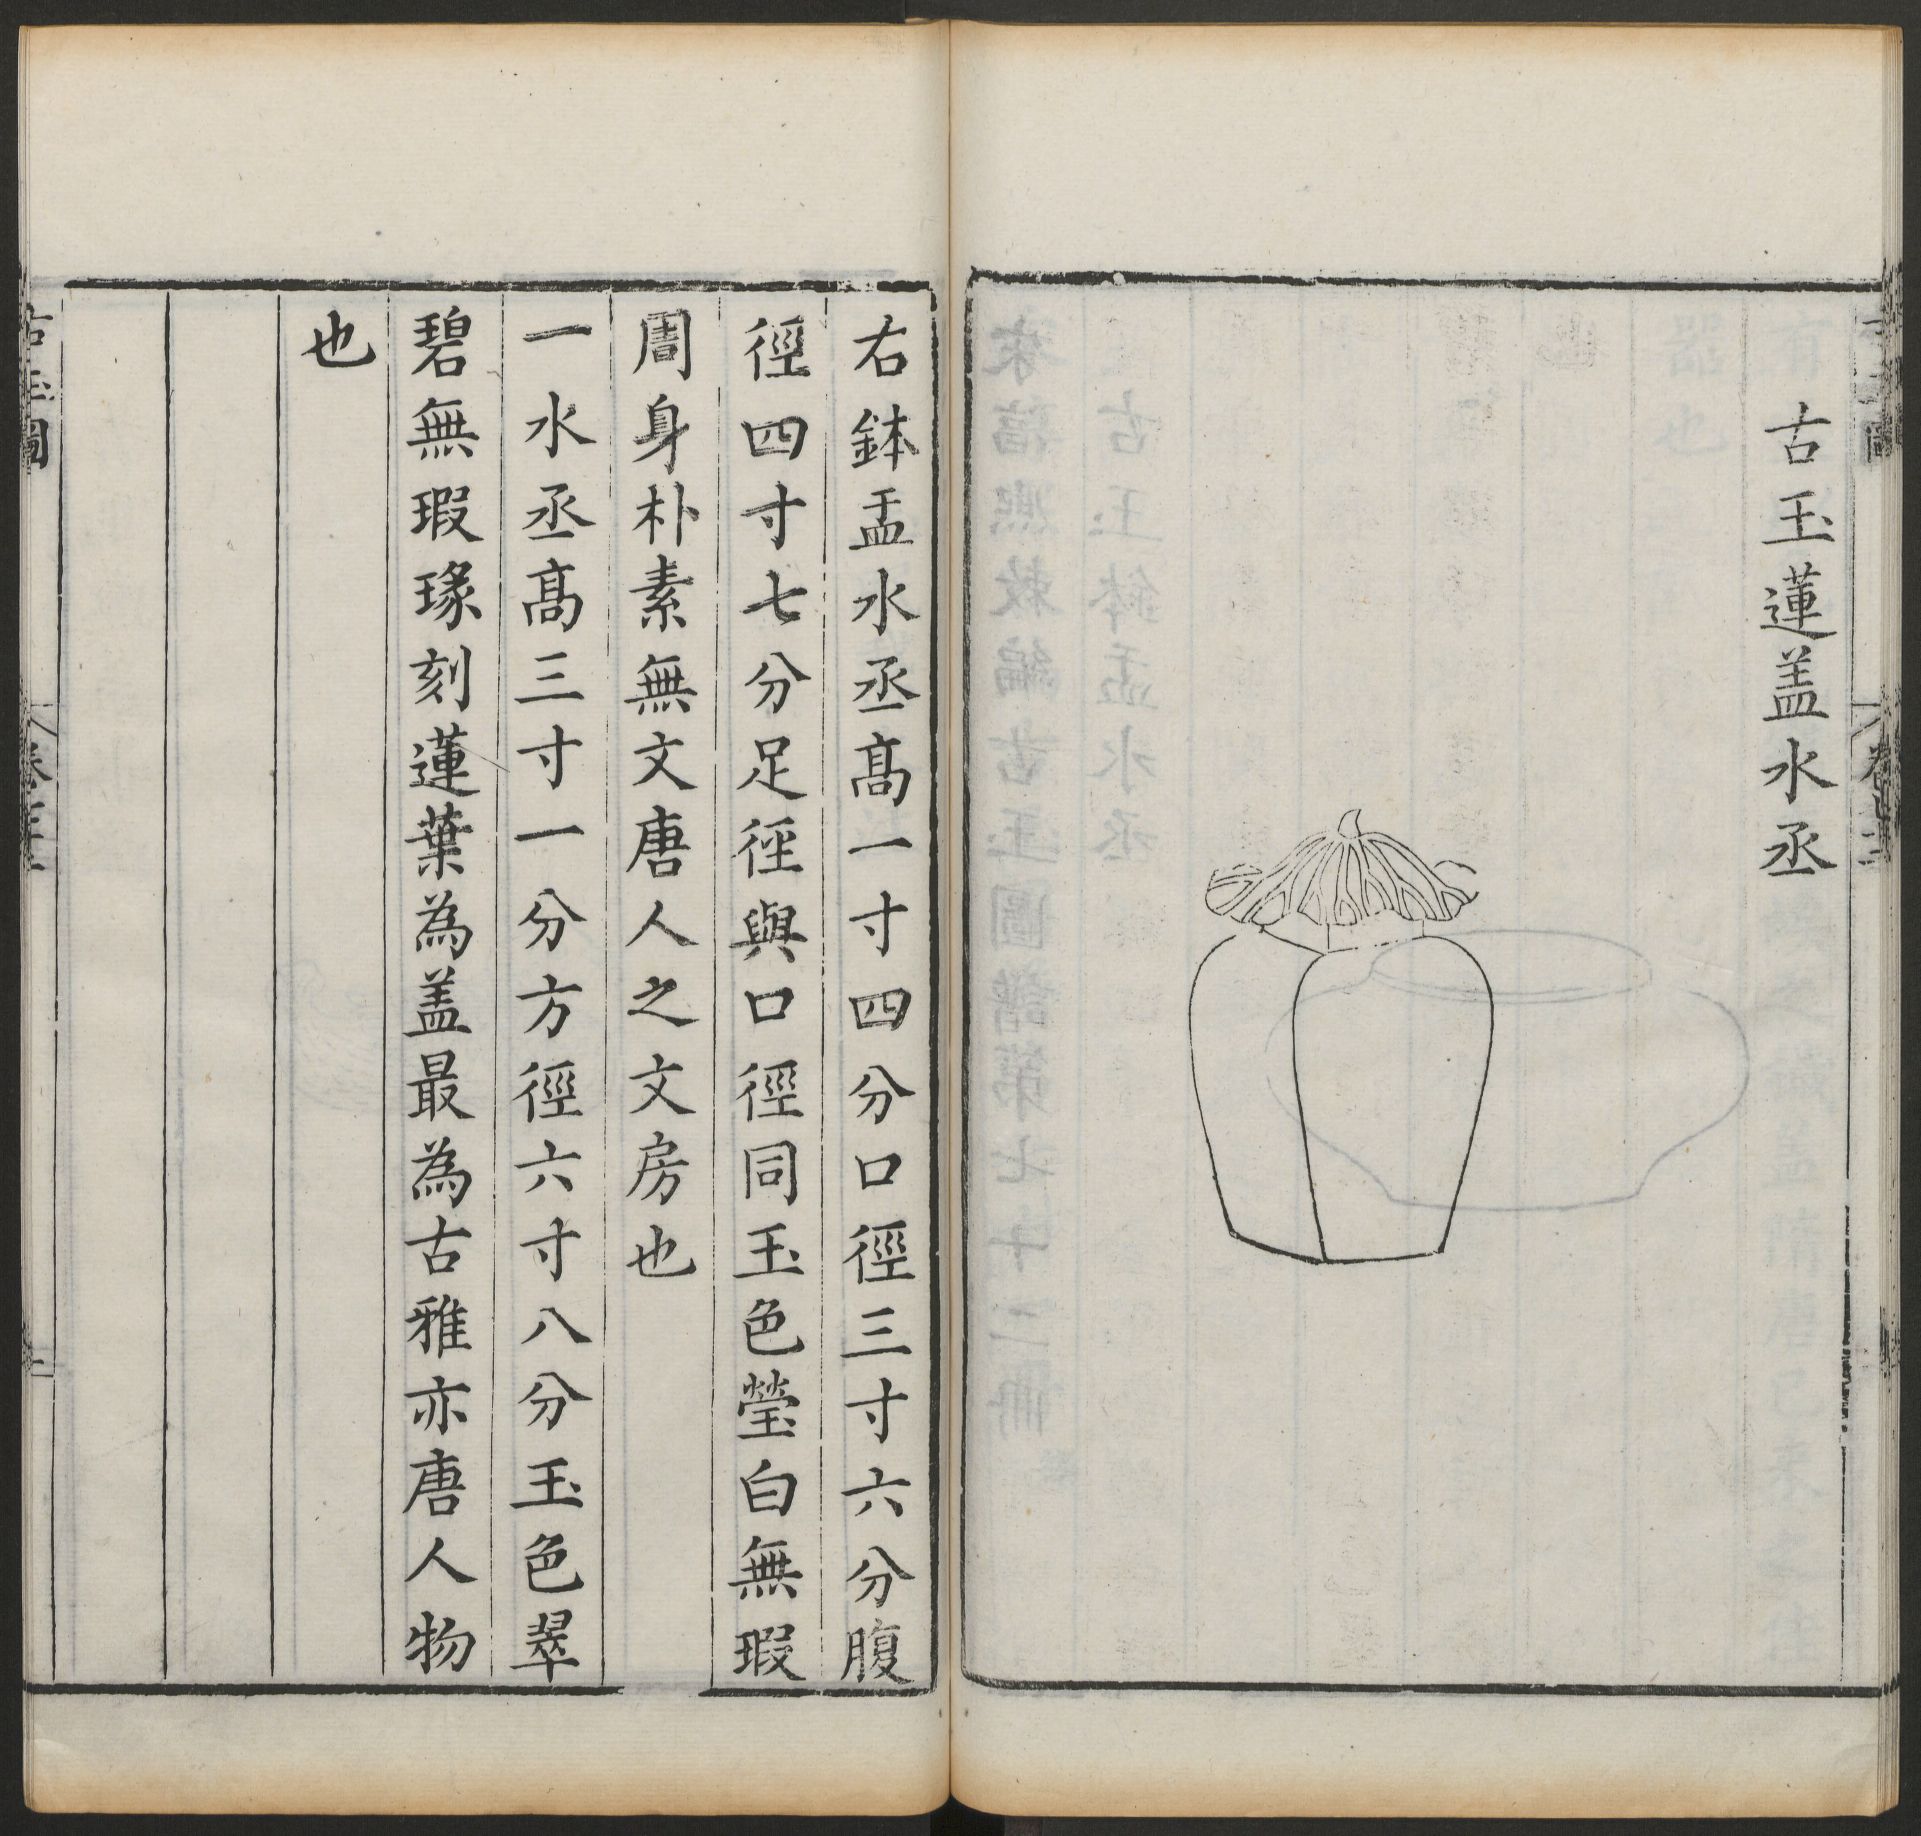 古玉蓮盖水丞
右鉢盂水丞髙一寸四分口徑三寸六分腹
徑四寸七分足徑與口徑同玉色瑩白無瑕
周身朴素無文唐人之文房也
一水丞髙三寸一分方徑六寸八分玉色翠
碧無瑕瑑刻蓮葉為盖最為古雅亦唐人物
也